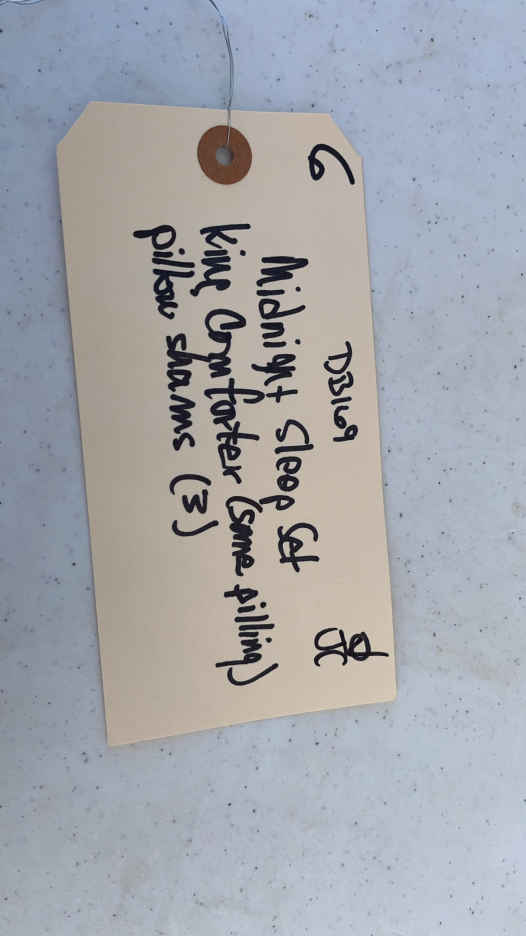 6 DB169
Midnight Sleep Set
King Comforter (some pilling)
pillow shams (3)